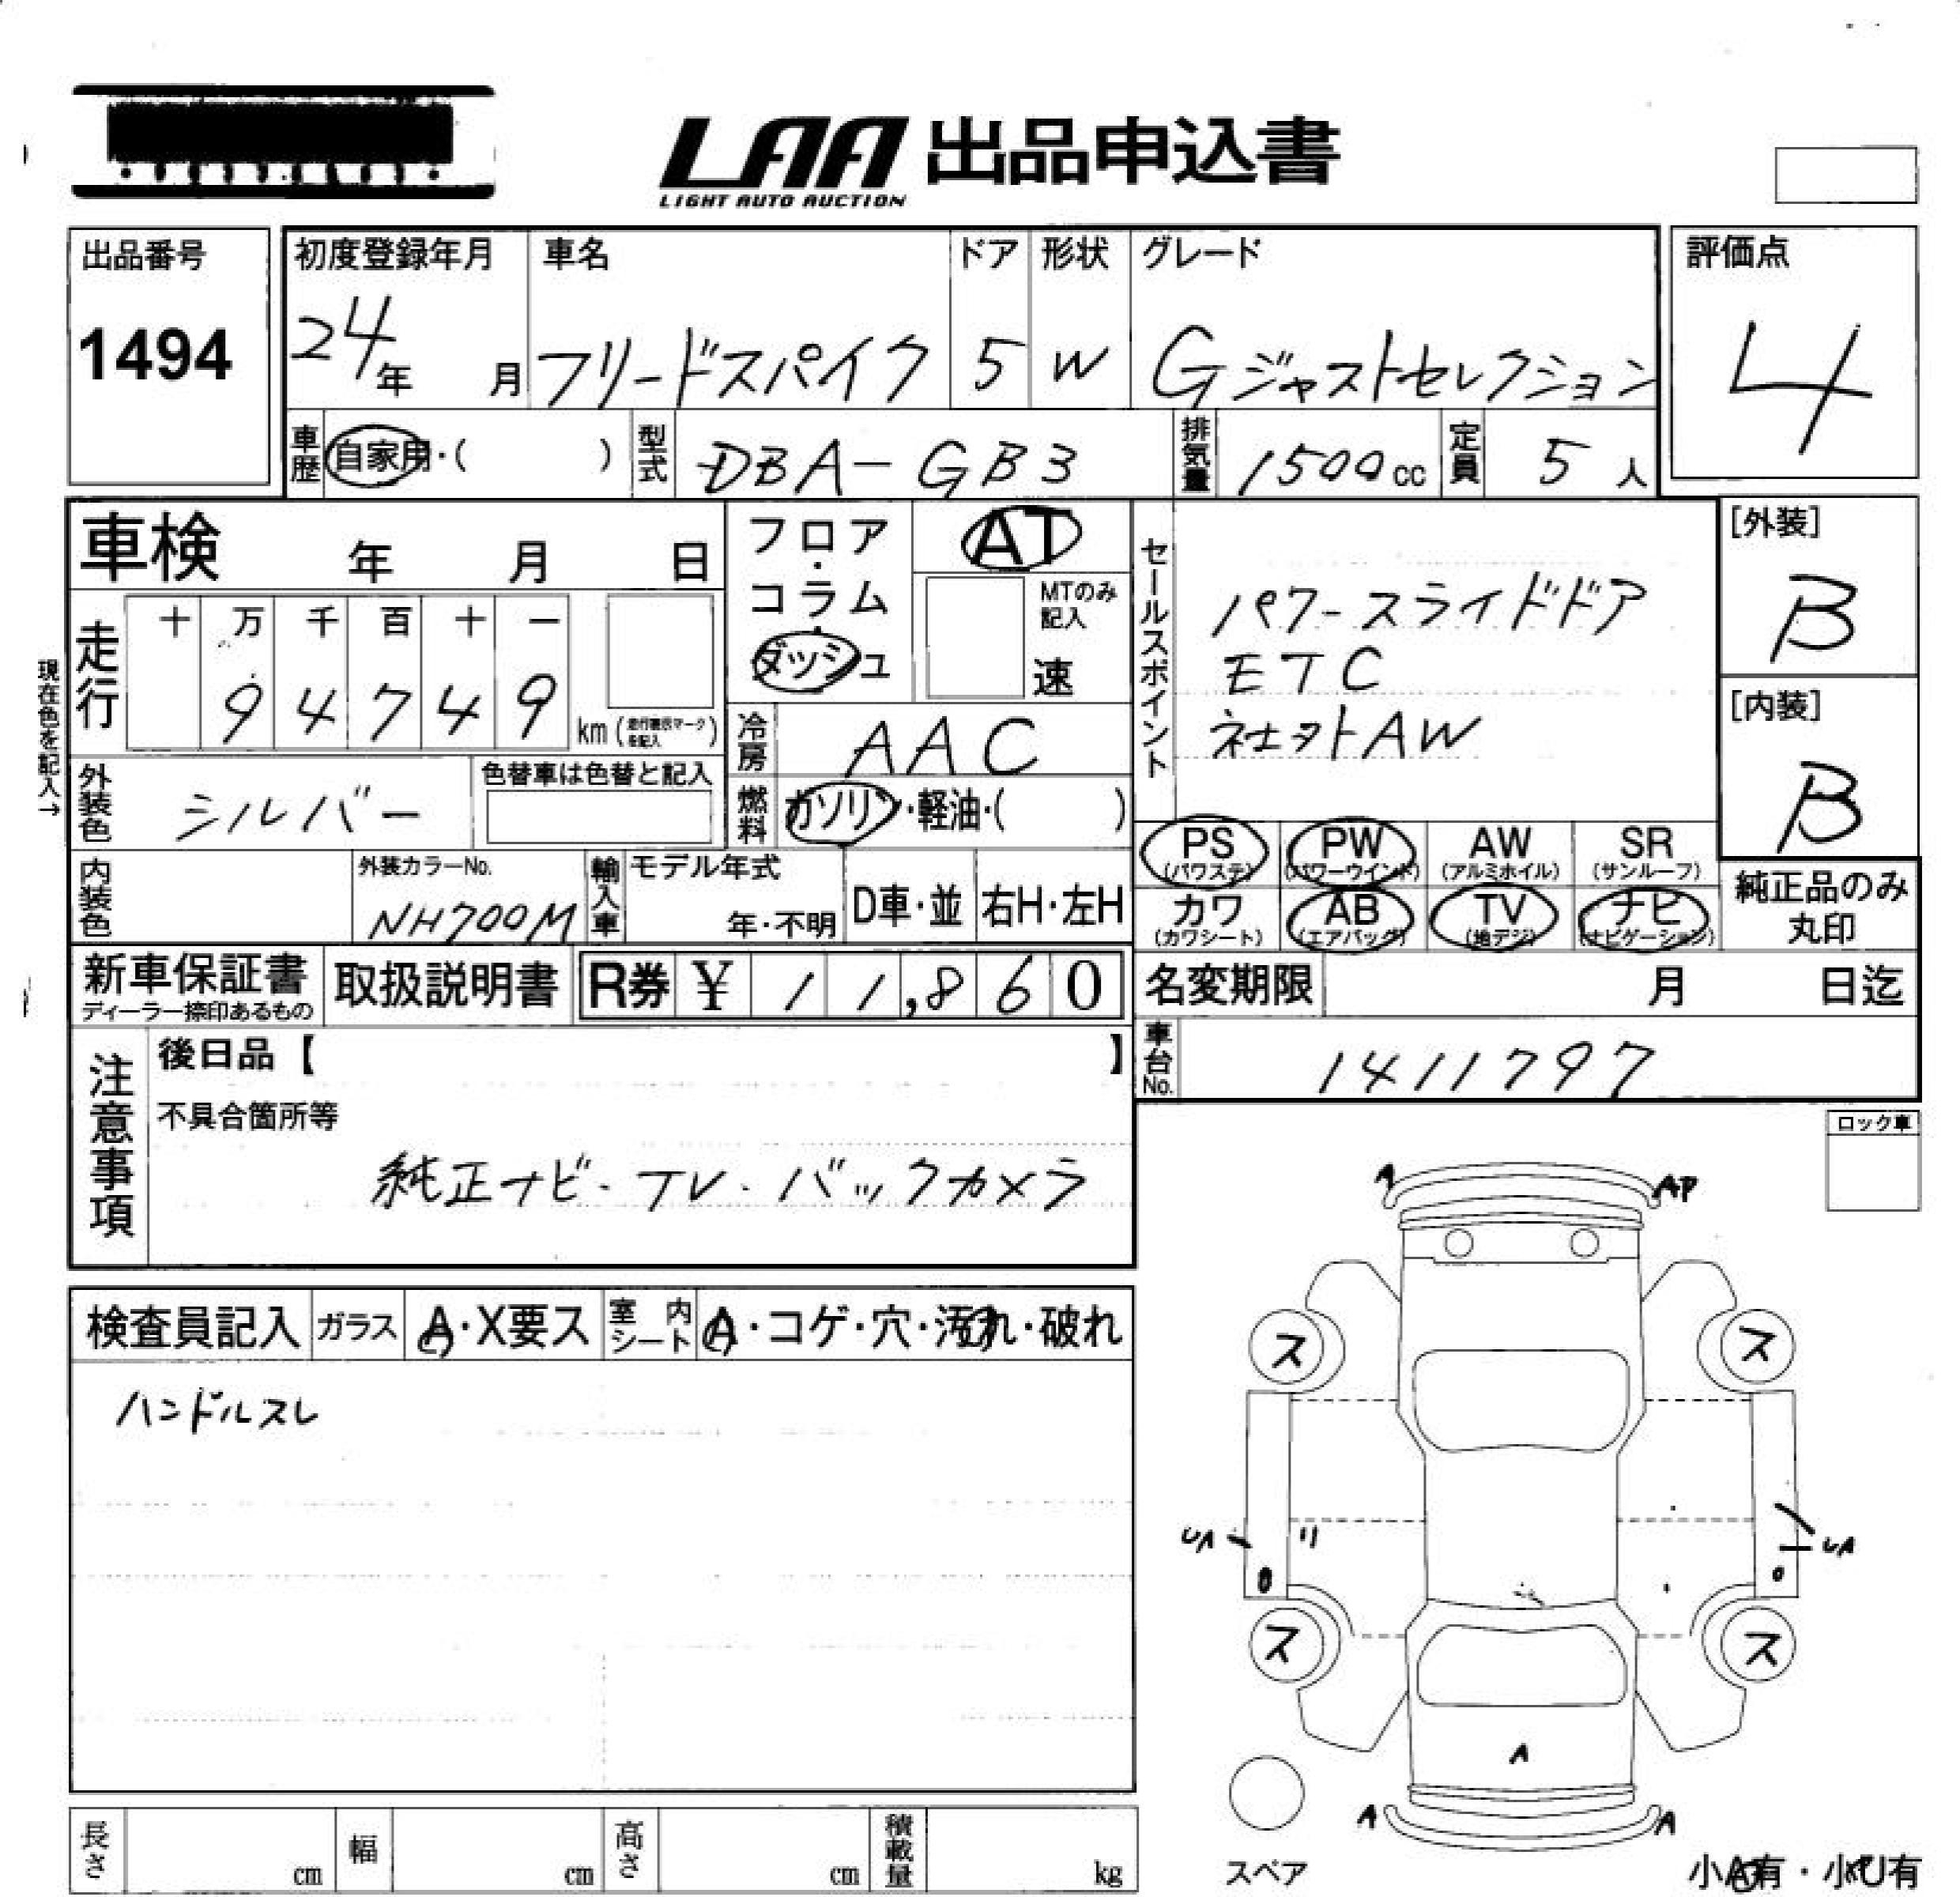 LAA 出品申込書
LIGHT AUTO AUCTION
出品番号
1494
初度登録年月
24年 月
車名
フリードスパイク
ドア
5
形状
W
グレード
Gジャストセレクション
評価点
4
車歴 自家用・( )
型式 DBA-GB3
排気量 1500cc
定員 5人
車検 年 月 日
走行
十 万 千 百 十 一
9 4 7 4 9
km (走行表示マークを記入)
現在色を記入→
外装色 シルバー
色替車は色替と記入
内装色
外装カラーNo.
NH700M
輸入車
モデル年式
年・不明
D車・並 右H・左H
フロア・コラム・ダッシュ
AT
MTのみ記入
速
冷房 AAC
燃料 ガソリン・軽油・( )
セールスポイント
パワースライドドア
ETC
社外AW
[外装]
B
[内装]
B
PS
(パワステ)
PW
(パワーウインド)
AW
(アルミホイル)
SR
(サンルーフ)
カワ
(カワシート)
AB
(エアバッグ)
TV
(地デジ)
ナビ
(ナビゲーション)
純正品のみ
丸印
新車保証書
ディーラー捺印あるもの
取扱説明書
R券 ¥ 11,860
名変期限 月 日迄
車台No. 1411797
注意事項
後日品【 】
不具合箇所等
純正ナビ・TV・バックカメラ
ロック車
検査員記入 ガラス A・X要ス
室内シート A・コゲ・穴・汚れ・破れ
ハンドルスレ
A AP
ス ス
UA UA
ス ス
A
A A
スペア
小A有・小U有
長さ cm 幅 cm 高さ cm 積載量 kg